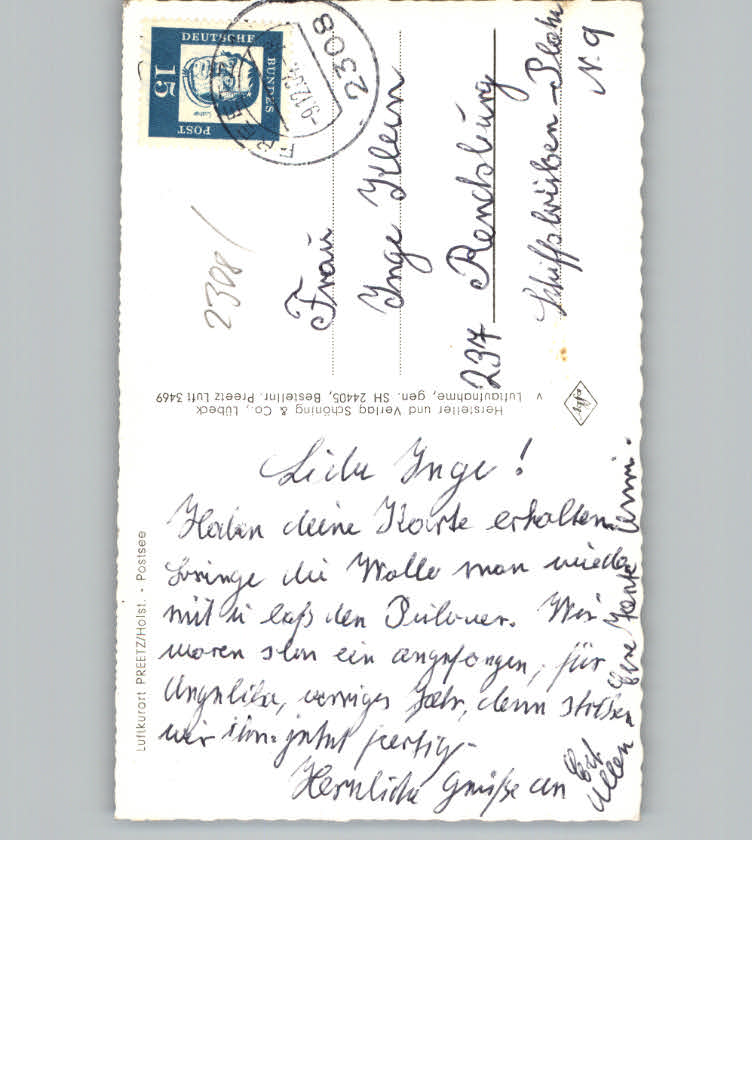 DEUTSCHE
BUNDES
POST
15
Luther
PREETZ
2308
-9.12.64.
2308/
Frau
Inge Klein
237 Rendsburg
Schiffbrücken-Platz
N. 9
Hersteller und Verlag Schöning & Co., Lübeck
v Luftaufnahme, gen. SH 24405, Bestellnr. Preetz Luft 3469
Luftkurort PREETZ/Holst. - Postsee
Liebe Inge!
Haben deine Karte erhalten.
bringe die Wolle man wieder
mit u laß den Pulover. Wir
waren schon ein angefangen, für
Angelika, voriges Jahr, denn
wir ihn jetzt fertig-
Herzliche Grüße an
Allen